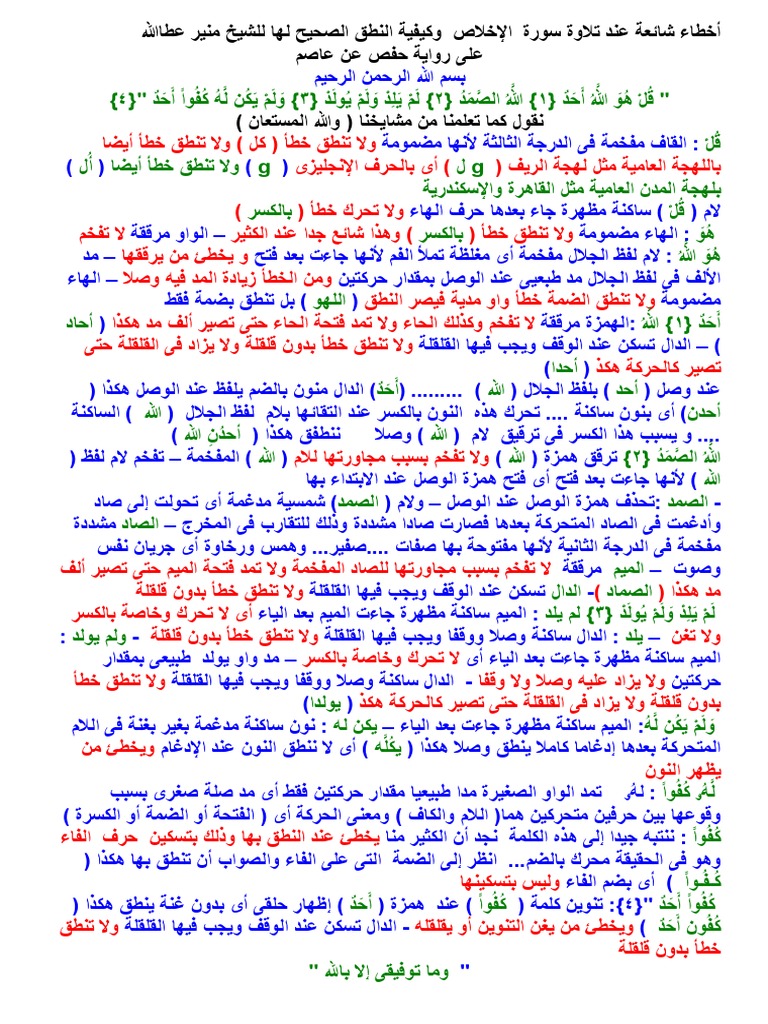 أخطاء شائعة عند تلاوة سورة الإخلاص وكيفية النطق الصحيح لها للشيخ منير عطاالله
على رواية حفص عن عاصم
بسم الله الرحمن الرحيم
" قُلْ هُوَ اللَّهُ أَحَدٌ {١} اللَّهُ الصَّمَدُ {٢} لَمْ يَلِدْ وَلَمْ يُولَدْ {٣} وَلَمْ يَكُن لَّهُ كُفُواً أَحَدٌ "{٤}
نقول كما تعلمنا من مشايخنا ( والله المستعان )
قُلْ : القاف مفخمة فى الدرجة الثالثة لأنها مضمومة ولا تنطق خطأ ( كل ) ولا تنطق خطأ أيضا
باللهجة العامية مثل لهجة الريف ( g ل ) أى بالحرف الإنجليزى ( g ) ولا تنطق خطأ أيضا ( أُل )
بلهجة المدن العامية مثل القاهرة والإسكندرية
لام ( قُلْ ) ساكنة مظهرة جاء بعدها حرف الهاء ولا تحرك خطأ ( بالكسر )
هُوَ : الهاء مضمومة ولا تنطق خطأ ( بالكسر ) وهذا شائع جدا عند الكثير – الواو مرققة لا تفخم
هُوَ اللَّهُ : لام لفظ الجلال مفخمة أى مغلظة تملأ الفم لأنها جاءت بعد فتح و يخطئ من يرققها – مد
الألف فى لفظ الجلال مد طبعيى عند الوصل بمقدار حركتين ومن الخطأ زيادة المد فيه وصلا – الهاء
مضمومة ولا تنطق الضمة خطأ واو مدية فيصر النطق ( اللهو ) بل تنطق بضمة فقط
أَحَدٌ {١} اللَّهُ :الهمزة مرققة لا تفخم وكذلك الحاء ولا تمد فتحة الحاء حتى تصير ألف مد هكذا ( أحاد
) – الدال تسكن عند الوقف ويجب فيها القلقلة ولا تنطق خطأ بدون قلقلة ولا يزاد فى القلقلة حتى
تصير كالحركة هكذ ( أحدا)
عند وصل ( أحد ) بلفظ الجلال ( الله ) ......... (أَحَدٌ) الدال منون بالضم يلفظ عند الوصل هكذا (
أحدن) أى بنون ساكنة .... تحرك هذه النون بالكسر عند التقائها بلام لفظ الجلال ( الله ) الساكنة
.... و يسبب هذا الكسر فى ترقيق لام ( الله ) وصلا ننطفق هكذا ( أحدُنِ الله )
اللَّهُ الصَّمَدُ {٢} ترقق همزة ( الله ) ولا تفخم بسبب مجاورتها للام ( الله ) المفخمة – تفخم لام لفظ (
الله ) لأنها جاءت بعد فتح أى فتح همزة الوصل عند الابتداء بها
- الصمد :تحذف همزة الوصل عند الوصل – ولام ( الصمد) شمسية مدغمة أى تحولت إلى صاد
وأدغمت فى الصاد المتحركة بعدها فصارت صادا مشددة وذلك للتقارب فى المخرج – الصاد مشددة
مفخمة فى الدرجة الثانية لأنها مفتوحة بها صفات ....صفير... وهمس ورخاوة أى جريان نفس
وصوت – الميم مرققة لا تفخم بسبب مجاورتها للصاد المفخمة ولا تمد فتحة الميم حتى تصير ألف
مد هكذا ( الصماد )- الدال تسكن عند الوقف ويجب فيها القلقلة ولا تنطق خطأ بدون قلقلة
لَمْ يَلِدْ وَلَمْ يُولَدْ {٣} لم يلد : الميم ساكنة مظهرة جاءت الميم بعد الياء أى لا تحرك وخاصة بالكسر
ولا تغن – يلد : الدال ساكنة وصلا ووقفا ويجب فيها القلقلة ولا تنطق خطأ بدون قلقلة - ولم يولد :
الميم ساكنة مظهرة جاءت بعد الياء أى لا تحرك وخاصة بالكسر – مد واو يولد طبيعى بمقدار
حركتين ولا يزاد عليه وصلا ولا وقفا - الدال ساكنة وصلا ووقفا ويجب فيها القلقلة ولا تنطق خطأ
بدون قلقلة ولا يزاد فى القلقلة حتى تصير كالحركة هكذ ( يولدا)
وَلَمْ يَكُن لَّهُ: الميم ساكنة مظهرة جاءت بعد الياء – يكن له : نون ساكنة مدغمة بغير بغنة فى اللام
المتحركة بعدها إدغاما كاملا ينطق وصلا هكذا ( يكُلَّه ) أى لا ننطق النون عند الإدغام ويخطئ من
يظهر النون
لَّهُۥ كُفُواً : لهۥ تمد الواو الصغيرة مدا طبيعيا مقدار حركتين فقط أى مد صلة صغرى بسبب
وقوعها بين حرفين متحركين هما( اللام والكاف ) ومعنى الحركة أى ( الفتحة أو الضمة أو الكسرة )
كُفُواً : ننتبه جيدا إلى هذه الكلمة نجد أن الكثير منا يخطئ عند النطق بها وذلك بتسكين حرف الفاء
وهو فى الحقيقة محرك بالضم... انظر إلى الضمة التى على الفاء والصواب أن تنطق بها هكذا (
كُفُواً ) أى بضم الفاء وليس بتسكينها
كُفُواً أَحَدٌ "{٤}: تنوين كلمة ( كُفُواً ) عند همزة ( أَحَدٌ ) إظهار حلقى أى بدون غنة ينطق هكذا (
كُفُون أَحَدٌ ) ويخطئ من يغن التنوين أو يقلقله - الدال تسكن عند الوقف ويجب فيها القلقلة ولا تنطق
خطأ بدون قلقلة
" وما توفيقى إلا بالله "